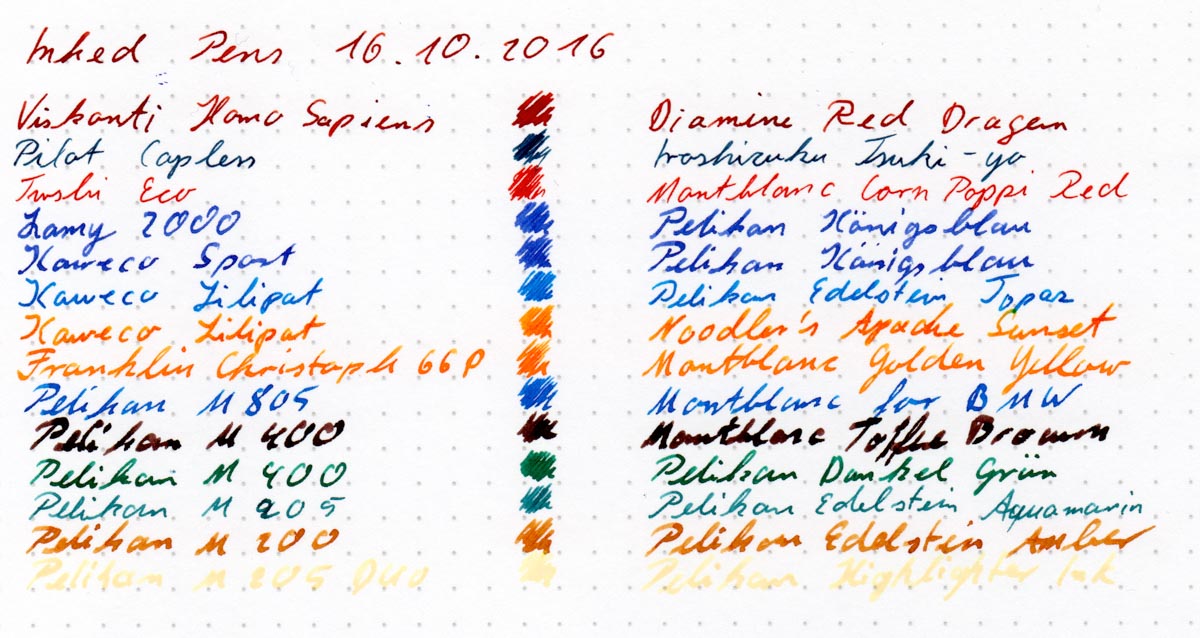 Inked Pens 16.10.2016
Viskonti Homo Sapiens Diamine Red Dragon
Pilot Capless Iroshizuku Tsuki-yo
Twsbi Eco Montblanc Corn Poppi Red
Lamy 2000 Pelikan Königsblau
Kaweco Sport Pelikan Königsblau
Kaweco Lilipat Pelikan Edelstein Topaz
Kaweco Lilipat Noodler's Apache Sunset
Franklin Christoph 66P Montblanc Golden Yellow
Pelikan M 805 Montblanc for BMW
Pelikan M 400 Montblanc Toffee Brown
Pelikan M 400 Pelikan Dunkel Grün
Pelikan M 205 Pelikan Edelstein Aquamarin
Pelikan M 200 Pelikan Edelstein Amber
Pelikan M 205 DUO Pelikan Highlighter Ink